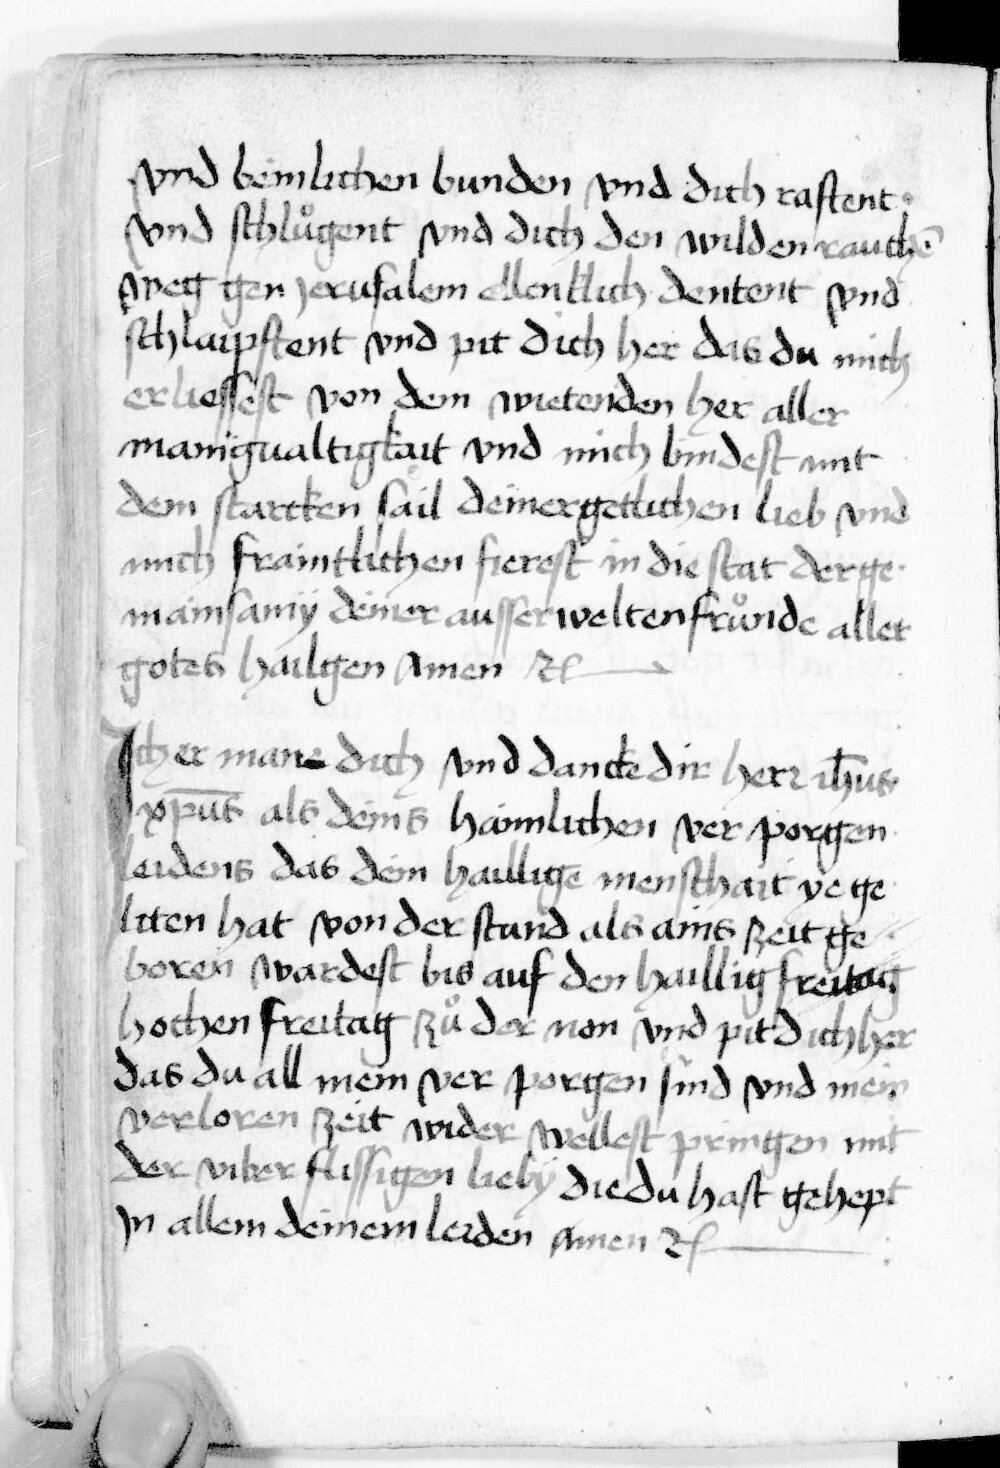 vnd beinlichen bunden vnd dich rastent
vnd schlůgent vnd dich den wilden rauchē
weg gen jerusalem ellentklich dentent vnd
schlaipftent vnd pit dich her das du mich
erliessest von dem wietenden her aller
manigualtigkait vnd mich bindest mit
dem starcken sail deiner getlichen lieb vnd
mich fraintlichen fierest in die stat der ge
mainsamÿ deiner ausserwelten frůnde aller
gotes hailgen Amen
Ich er mane dich vnd dancke dir herr ih̄us
xp̄us als deins haimlichen ver porgen
leidens das dein haillige menschait ye ge
liten hat von der stund als ains zeit ge
boren wardest bis auf den haillig freitag
hochen freitag zů der non vnd pit dich her
das du all mein ver porgen sind vnd mein
verloren zeit wider wellest pringen mit
der viber flissigen liebÿ die du hast gehept
In allem deinem leiden Amen